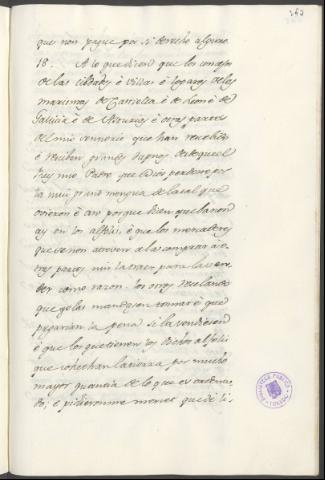 363
que non pague por si derecho alguno
18. A lo que dicen que los conceios
de las cibdades è villas è logares de las
marismas de Castiella è de Leon è de
Galicia è de Asturias è otras partes
de mio sennorio que han recebido
è reciben grandes dapnos desde que el
Rey mio Padre que Dios perdone, por
la muy grand mengua de la sal que
ovieron è an porque bien que la non
ay en los alfolis, è que los mercaderes
que se non atreven a la comprar a o-
tras partes, nin la traen para la ven-
der como razon
que gelas mandasen tomar è que
pecharian la pena si la vendiesen
è que los que tienen los dichos alfolis
que cohechan la tierra por mucho
mayor quantia de lo que es ordena-
do; è pidieronme merced que de li-
BIBLIOTECA PUBLICA
TOLEDO